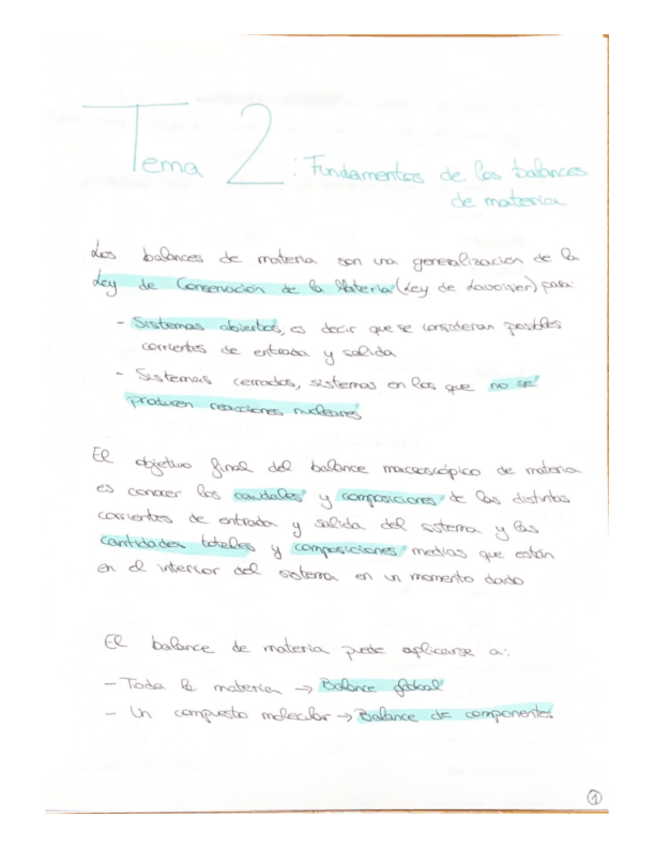 Tema 2: Fundamentos de los balances
de materia
Los balances de materia son una generalización de la
Ley de Conservación de la Materia (Ley de Lavoisier) para:
- Sistemas abiertos, es decir que se consideran posibles
corrientes de entrada y salida
- Sistemas cerrados, sistemas en los que no se
producen reacciones nucleares
El objetivo final del balance macroscópico de materia
es conocer los caudales y composiciones de las distintas
corrientes de entrada y salida del sistema y las
cantidades totales y composiciones medias que están
en el interior del sistema en un momento dado
El balance de materia puede aplicarse a:
- Toda la materia → Balance global
- Un compuesto molecular → Balance de componentes
1